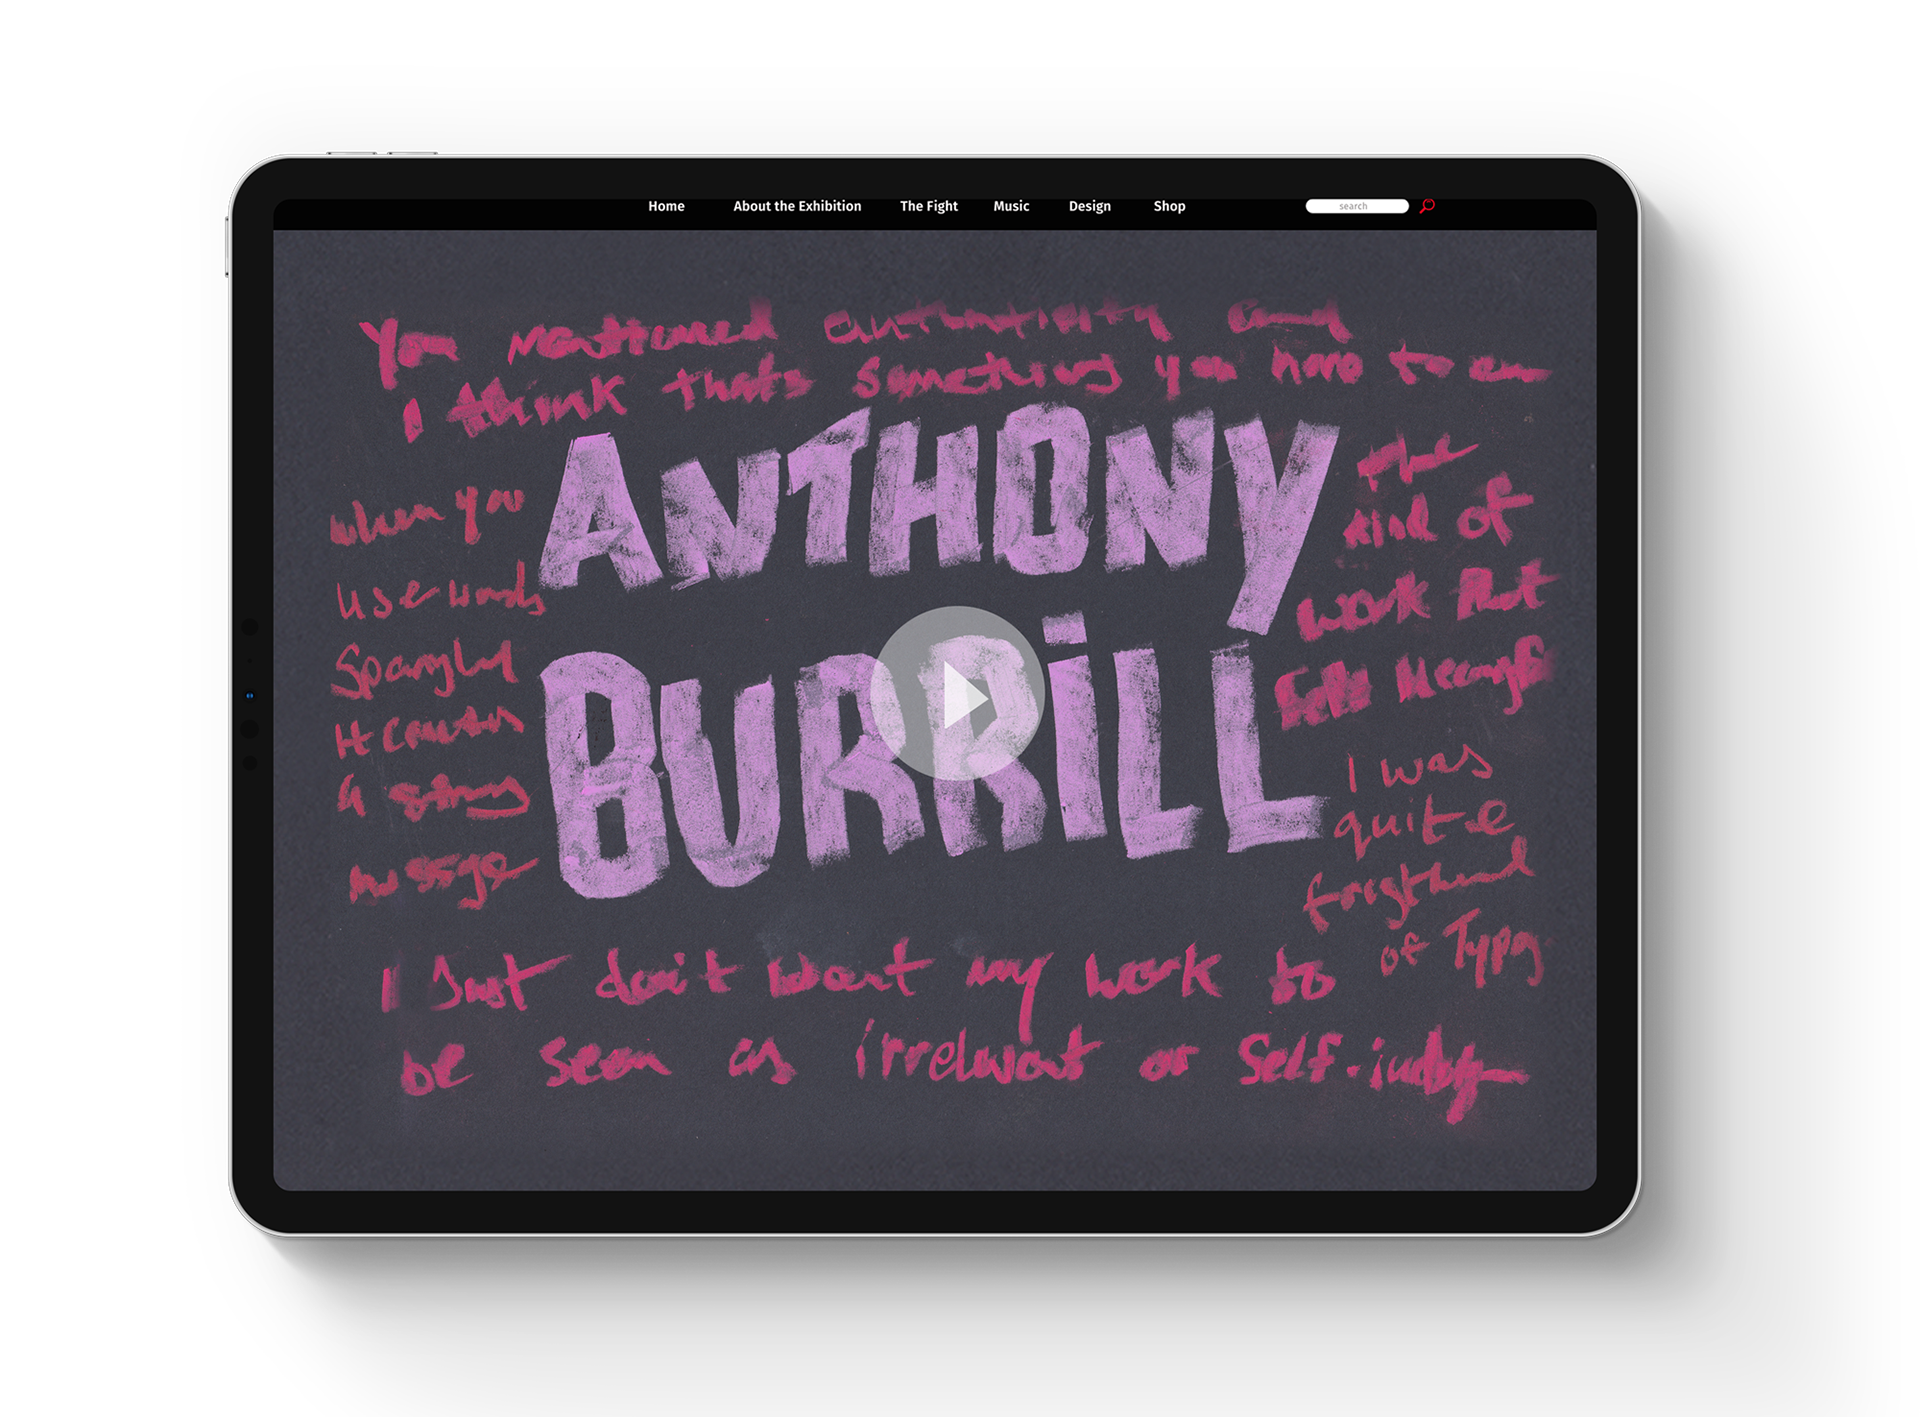 Home About the Exhibition The Fight Music Design Shop search
You mentioned authenticity and
I think thats something you have to
ANTHONY
BURRILL
when you
use words
Spangled
It
a strong
message
the
kind of
work that
felt
I was
quite
of Typog
I Just don't want my work to
be seen as irrelevant or Self-indulg